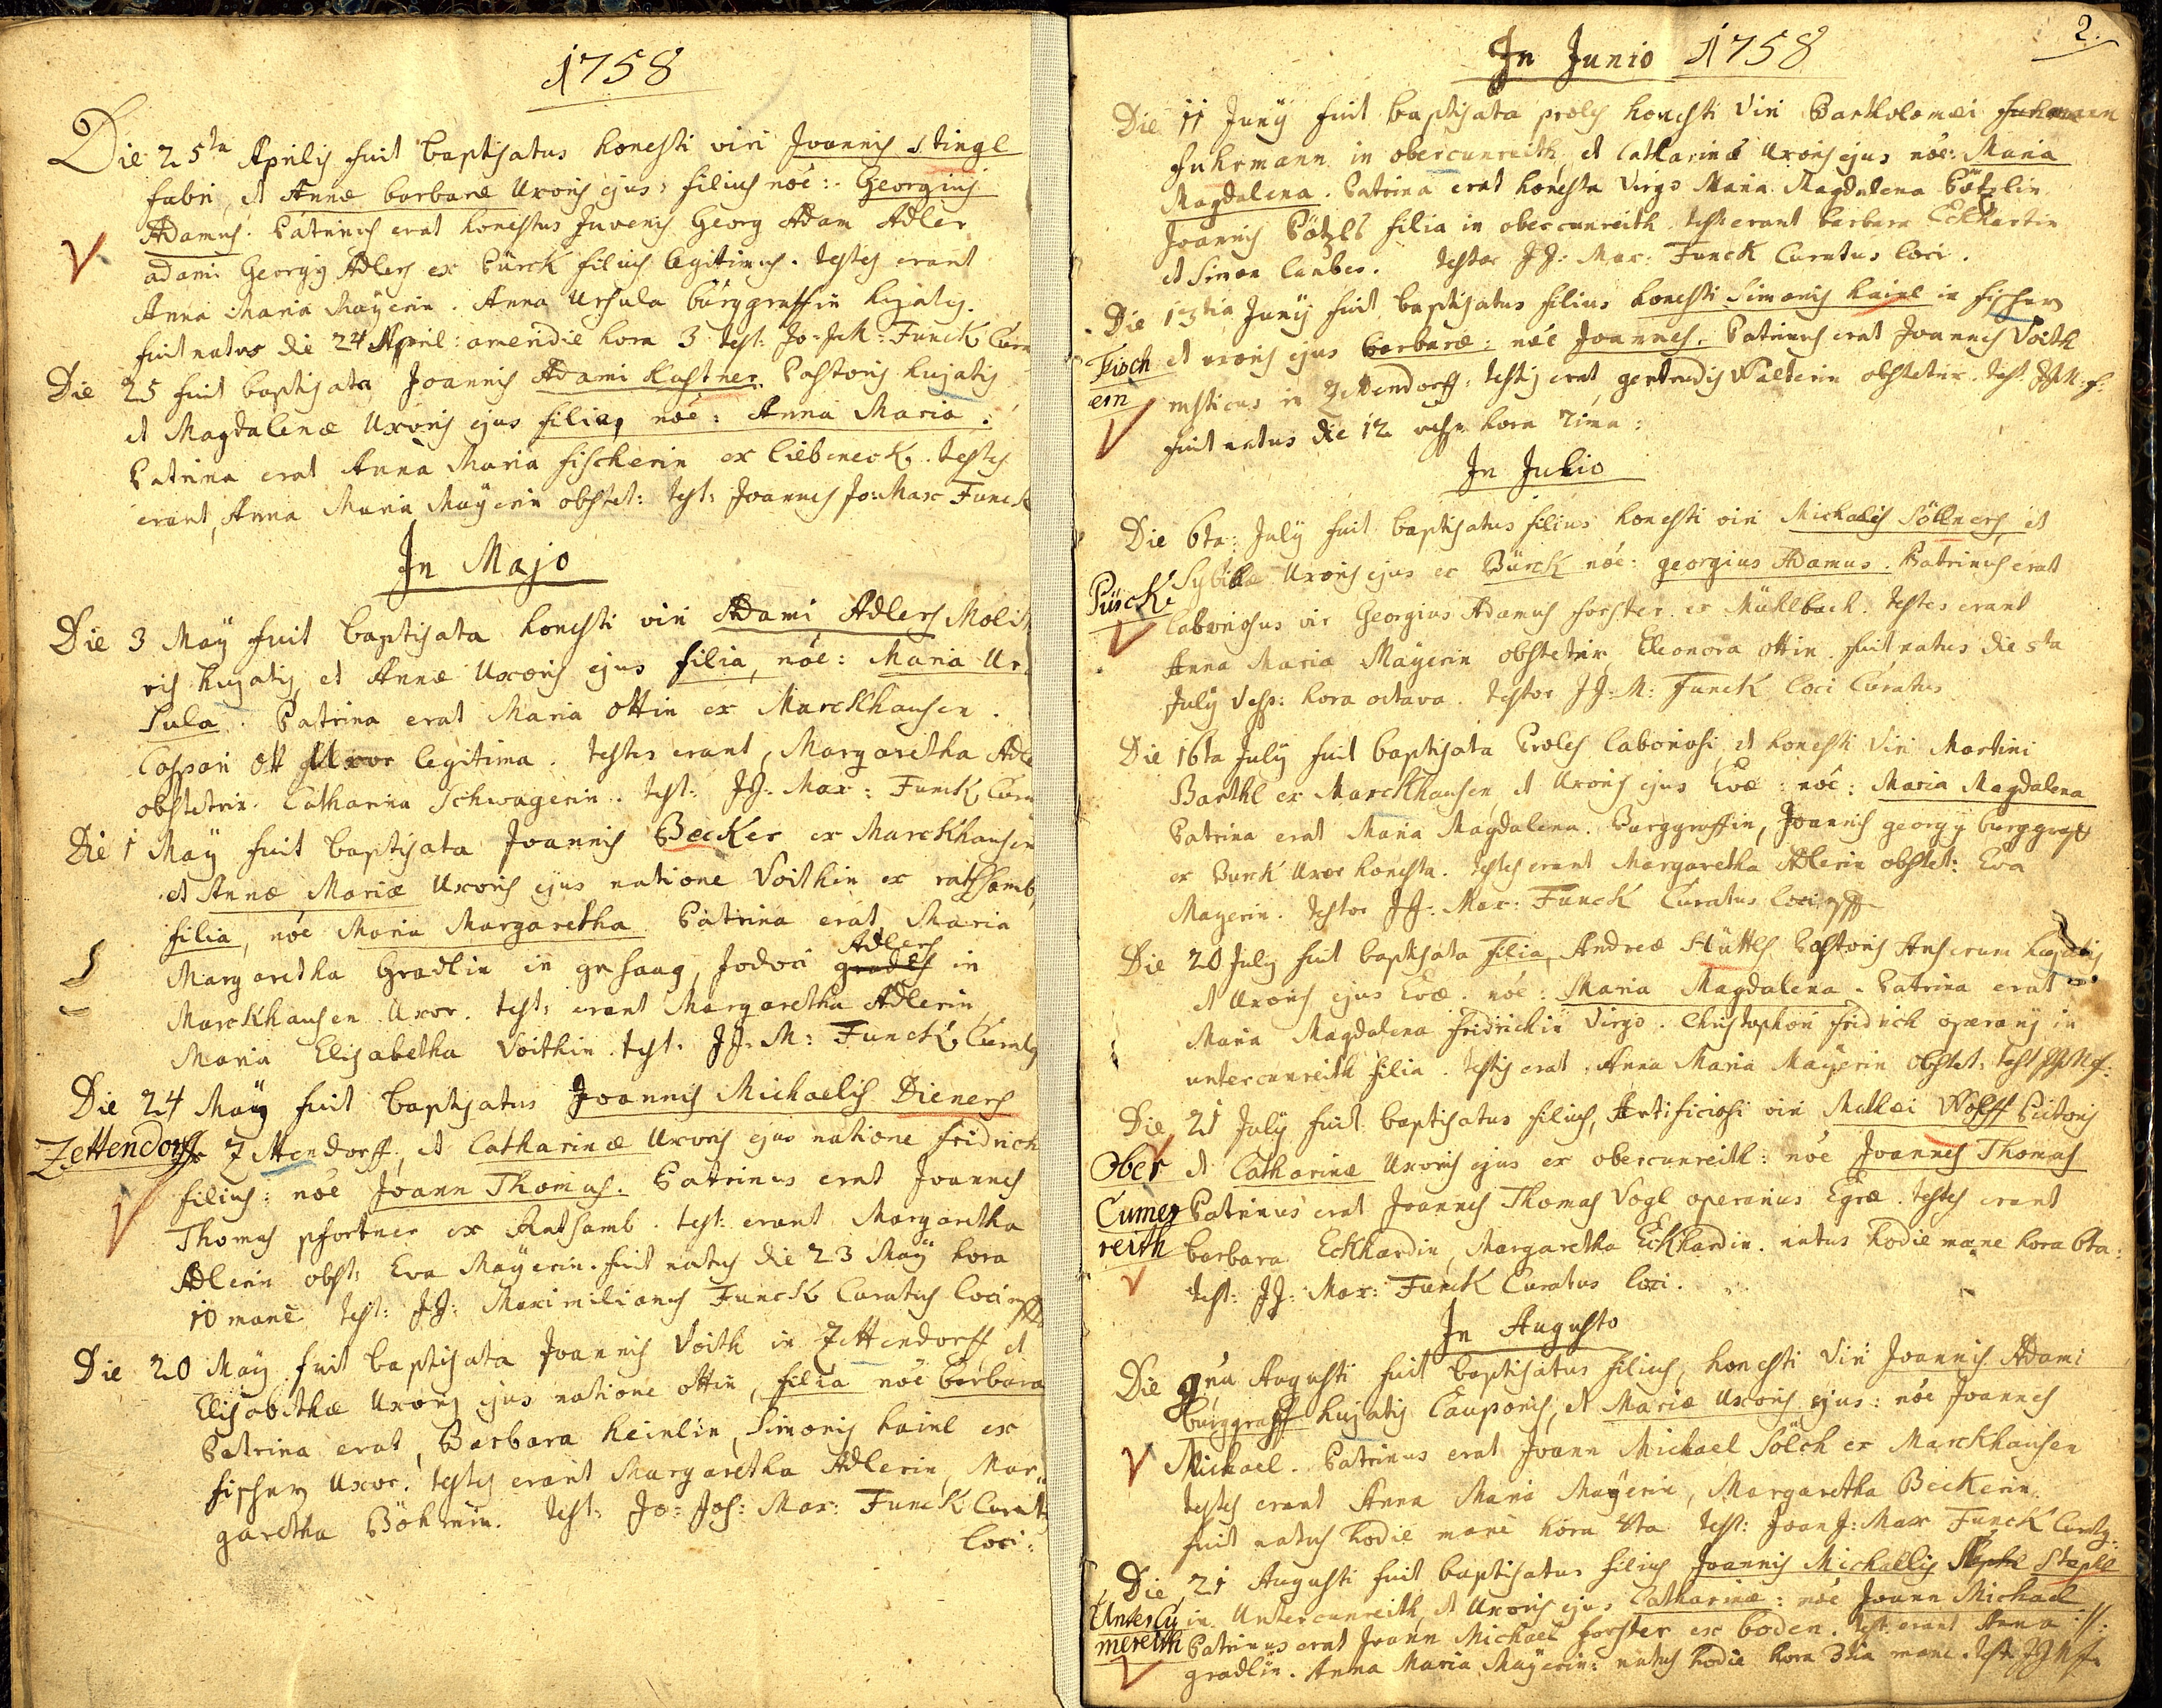 1758
Die 25ta Aprilis fuit baptisatus honesti viri Joannis Stingl
fabri, et Annæ barbaræ Uxoris ejus filius nõe: Georgius
Adamus. Patrinus erat honestus Juvenis Georg Adam Adler
adami Georgÿ Adlers ex Pürck filius legitimus. testes erant
Anna Maria Maÿerin. Anna Ursula burggraffin hujatis.
fuit natus die 24 April: a meridie hora 3 test: Jo: J: M: Funck Cura
Die 25 fuit baptisata Joannis Adami Kastner Pastoris hujatis
et Magdalenæ Uxoris ejus filia, nõe: Anna Maria.
Patrina erat Anna Maria fischerin ex liebeneck. testes
erant, Anna Maria Maÿerin obstet: test: Joannes Jo: Max Funck
In Majo
Die 3 Maÿ fuit baptisata honesti viri Adami Adlers Molit
ris hujatis, et Annæ Uxoris ejus filia, nõe: Maria Ur
sula. Patrina erat Maria Ottin ex Marckhausen.
Caspari Ott Uxor legitima. testes erant, Margaretha Adle
obstetrix. Catharina Schwagerin. test: JJ: Max: Funck Cura
Die 1 Maÿ fuit baptisata Joannis Becker ex Marckhausen
et Annæ Mariæ Uxoris ejus natione Voithin ex rathsamb,
filia, nõe Maria Margaretha Patrina erat Maria
Margaretha Gradlin in gehaag, Jodoci gradls Adlers in
Marckhausen Uxor. test: erant Margaretha Adlerin
Maria Elisabetha Voithin. test. JJ. M: Funck Curat9
Die 24 Maÿ fuit baptisatus Joannis Michaelis Dieners
Zettendorff Zettendorff, et Catharinæ Uxoris ejus natione fridrich
filius: nõe Joann Thomas. Patrinus erat Joannes
Thomas pfortner ex Rathsamb. test: erant Margaretha
Adlerin obst: Eva Maÿerin. fuit natus die 23 Maÿ hora
10 mane test: JJ: Maximilianus Funck Curatus loci
Die 20 Maÿ fuit baptisata Joannis Voith in Zettendorff et
Elisabethæ Uxoris ejus natione ottin, filia nõe barbara
Patrina erat, Barbara heinlin, Simonis hainl ex
fischern Uxor. testes erant Margaretha Adlerin, Mar
garetha Böhmin. test: Jo: Jos: Max: Funck Curat9
loci:
2.
In Junio 1758
Die 11 Junÿ fuit baptisata proles honesti viri Bartholomæi fuhrmann
fuhrmann in obercunreith, et Catharinæ Uxoris ejus nõe: Maria
Magdalena. Patrina erat honesta Virgo Maria Magdalena Pötzlin
Joannis Pötzls filia in obercunreith. test: erant barbara Eckhartin
et Simon lauber. testor JJ: Max: Funck Curatus loci.
Die 13tia Junÿ fuit baptisatus filius honesti Simonis hainl in fischern
Fisch et uxoris ejus barbaræ: nõe Joannes. Patrinus erat Joannes Voith
ern rusticus in Zettendorff. testis erat gertrudis Walterin obstetrix. test. JJM: f:
fuit natus die 12 hora 7ima:
In Julio
Die 6ta: Julÿ fuit baptisatus filius honesti viri Michaelis Söllners, et
Pürck Sybillæ Uxoris ejus ex Bürck nõe: georgius Adamus. Patrinus erat
laboriosus vir Georgius Adamus forster ex Mühlbach. testes erant
Anna Maria Maÿerin obstetrix Eleonora ottin. fuit natus die 5ta
Julÿ Vesp: hora octava. testor JJ: M: Funck loci Curatus
Die 16ta Julÿ fuit baptisata Proles laboriosi, et honesti Viri Martini
Barthl ex Marckhausen, et Uxoris ejus Evæ: nõe: Maria Magdalena
Patrina erat Maria Magdalena. Burggraffin, Joannis georgÿ burggraff
ex Burck Uxor honesta. testes erant Margaretha Adlerin obstet: Eva
Mayerin. testor JJ: Max: Funck Curatus loci
Die 20 Julÿ fuit baptisata filia, Andreæ Hüttls Pastoris Anserum hujatis
et Uxoris ejus Evæ. nõe: Maria Magdalena. Patrina erat
Maria Magdalena fridrichin Virgo. Christophori fridrich operarÿ in
untercunreith filia. testis erat. Anna Maria Maÿerin Obstet: test JJMf:
Die 21 Julÿ fuit baptisatus filius, Artificiosi viri Mathæi Wolff Pictoris
Ober et Catharinæ Uxoris ejus ex obercunreith: nõe Joannes Thomas
Cune Patrinus erat Joannes Thomas Vogl operarius Egræ. testes erant
reith barbara Eckhardin, Margaretha Eckhardin. natus hodie mane hora 6ta:
test: JJ: Max: Funck Curatus loci.
In Augusto
Die 9na Augusti fuit baptisatus filius, honesti viri Joannis Adami
burggraff hujatis Cauponis, et Mariæ Uxoris ejus: nõe Joannes
Michael. Patrinus erat Joann Michael Sölch ex Marckhausen
testes erant Anna Maria Maÿerin, Margaretha Beckerin.
fuit natus hodie mane hora 4ta test: Joan J: Max Funck Curat9.
Die 21 Augusti fuit baptisatus filius Joannis Michaelis Stapl
Untercu in Untercunreith, et Uxoris ejus Catharinæ: nõe Joann Michael
nereith Patrinus erat Joann Michael forster ex boden. test: erant Anna
gradlin. Anna Maria Maÿerin: natus hodie hora 3tia mane. test. JJMf.